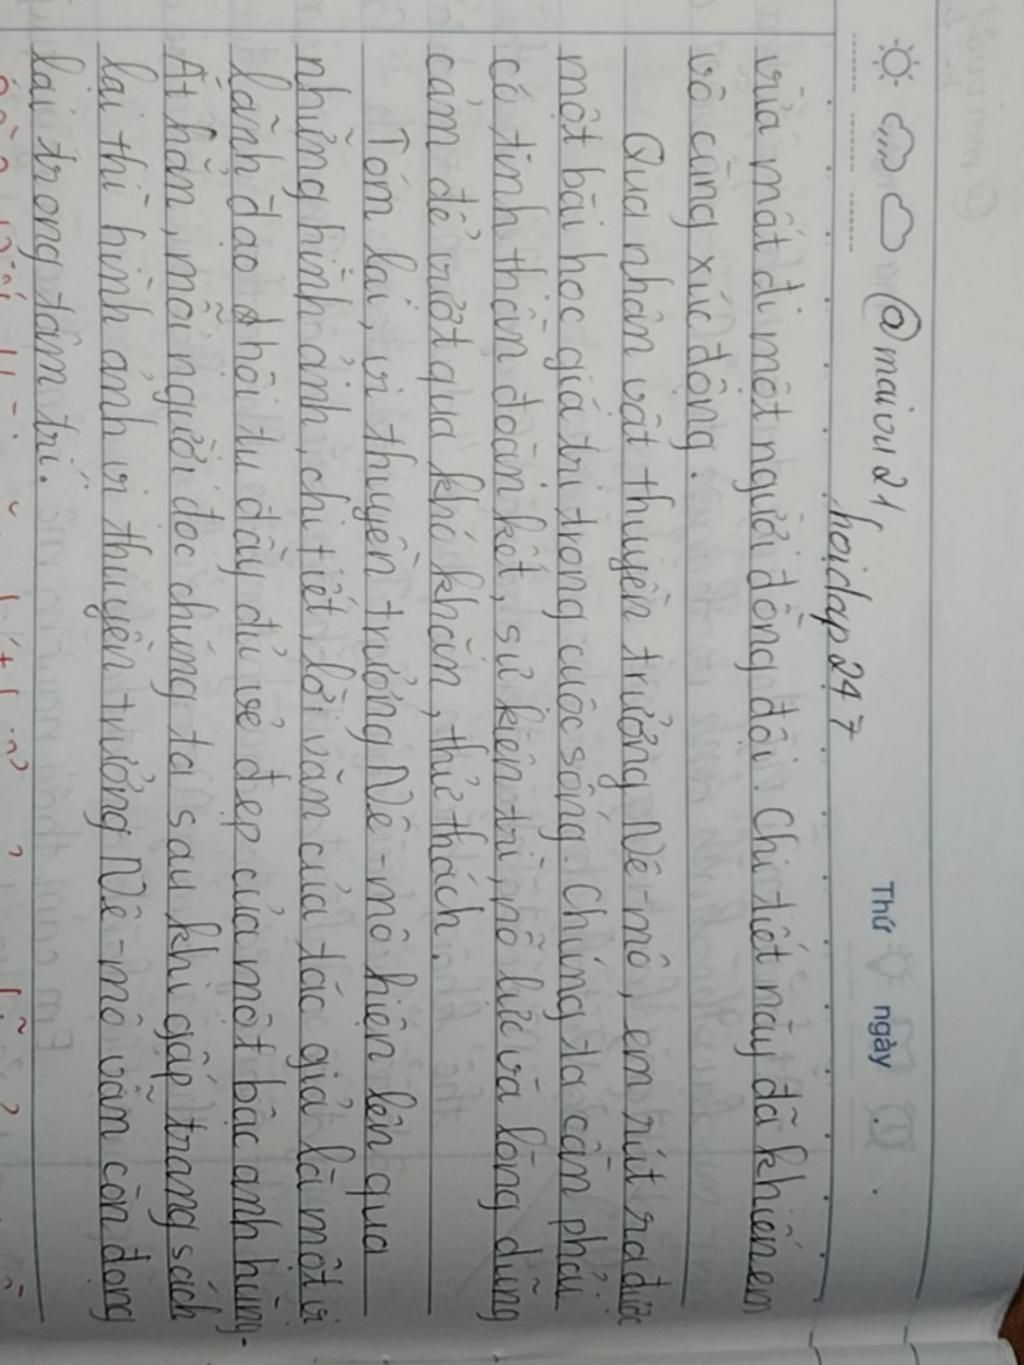 @maivu21,
hoidap247
Thứ ngày
vừa mất đi một người đồng đội. Chi tiết này đã khiến em
vô cùng xúc động.
Qua nhân vật thuyền trưởng Nê-mô, em rút ra được
một bài học giá trị trong cuộc sống. Chúng ta cần phải
có tinh thần đoàn kết, sự kiên trì, nỗ lực và lòng dũng
cảm để vượt qua khó khăn, thử thách.
Tóm lại, vị thuyền trưởng Nê-mô hiện lên qua
những hình ảnh, chi tiết, lời văn của tác giả là một vị
lãnh đạo hội tụ đầy đủ vẻ đẹp của một bậc anh hùng.
Ắt hẳn, mỗi người đọc chúng ta sau khi gấp trang sách
lại thì hình ảnh vị thuyền trưởng Nê-mô vẫn còn đọng
lại trong tâm trí.